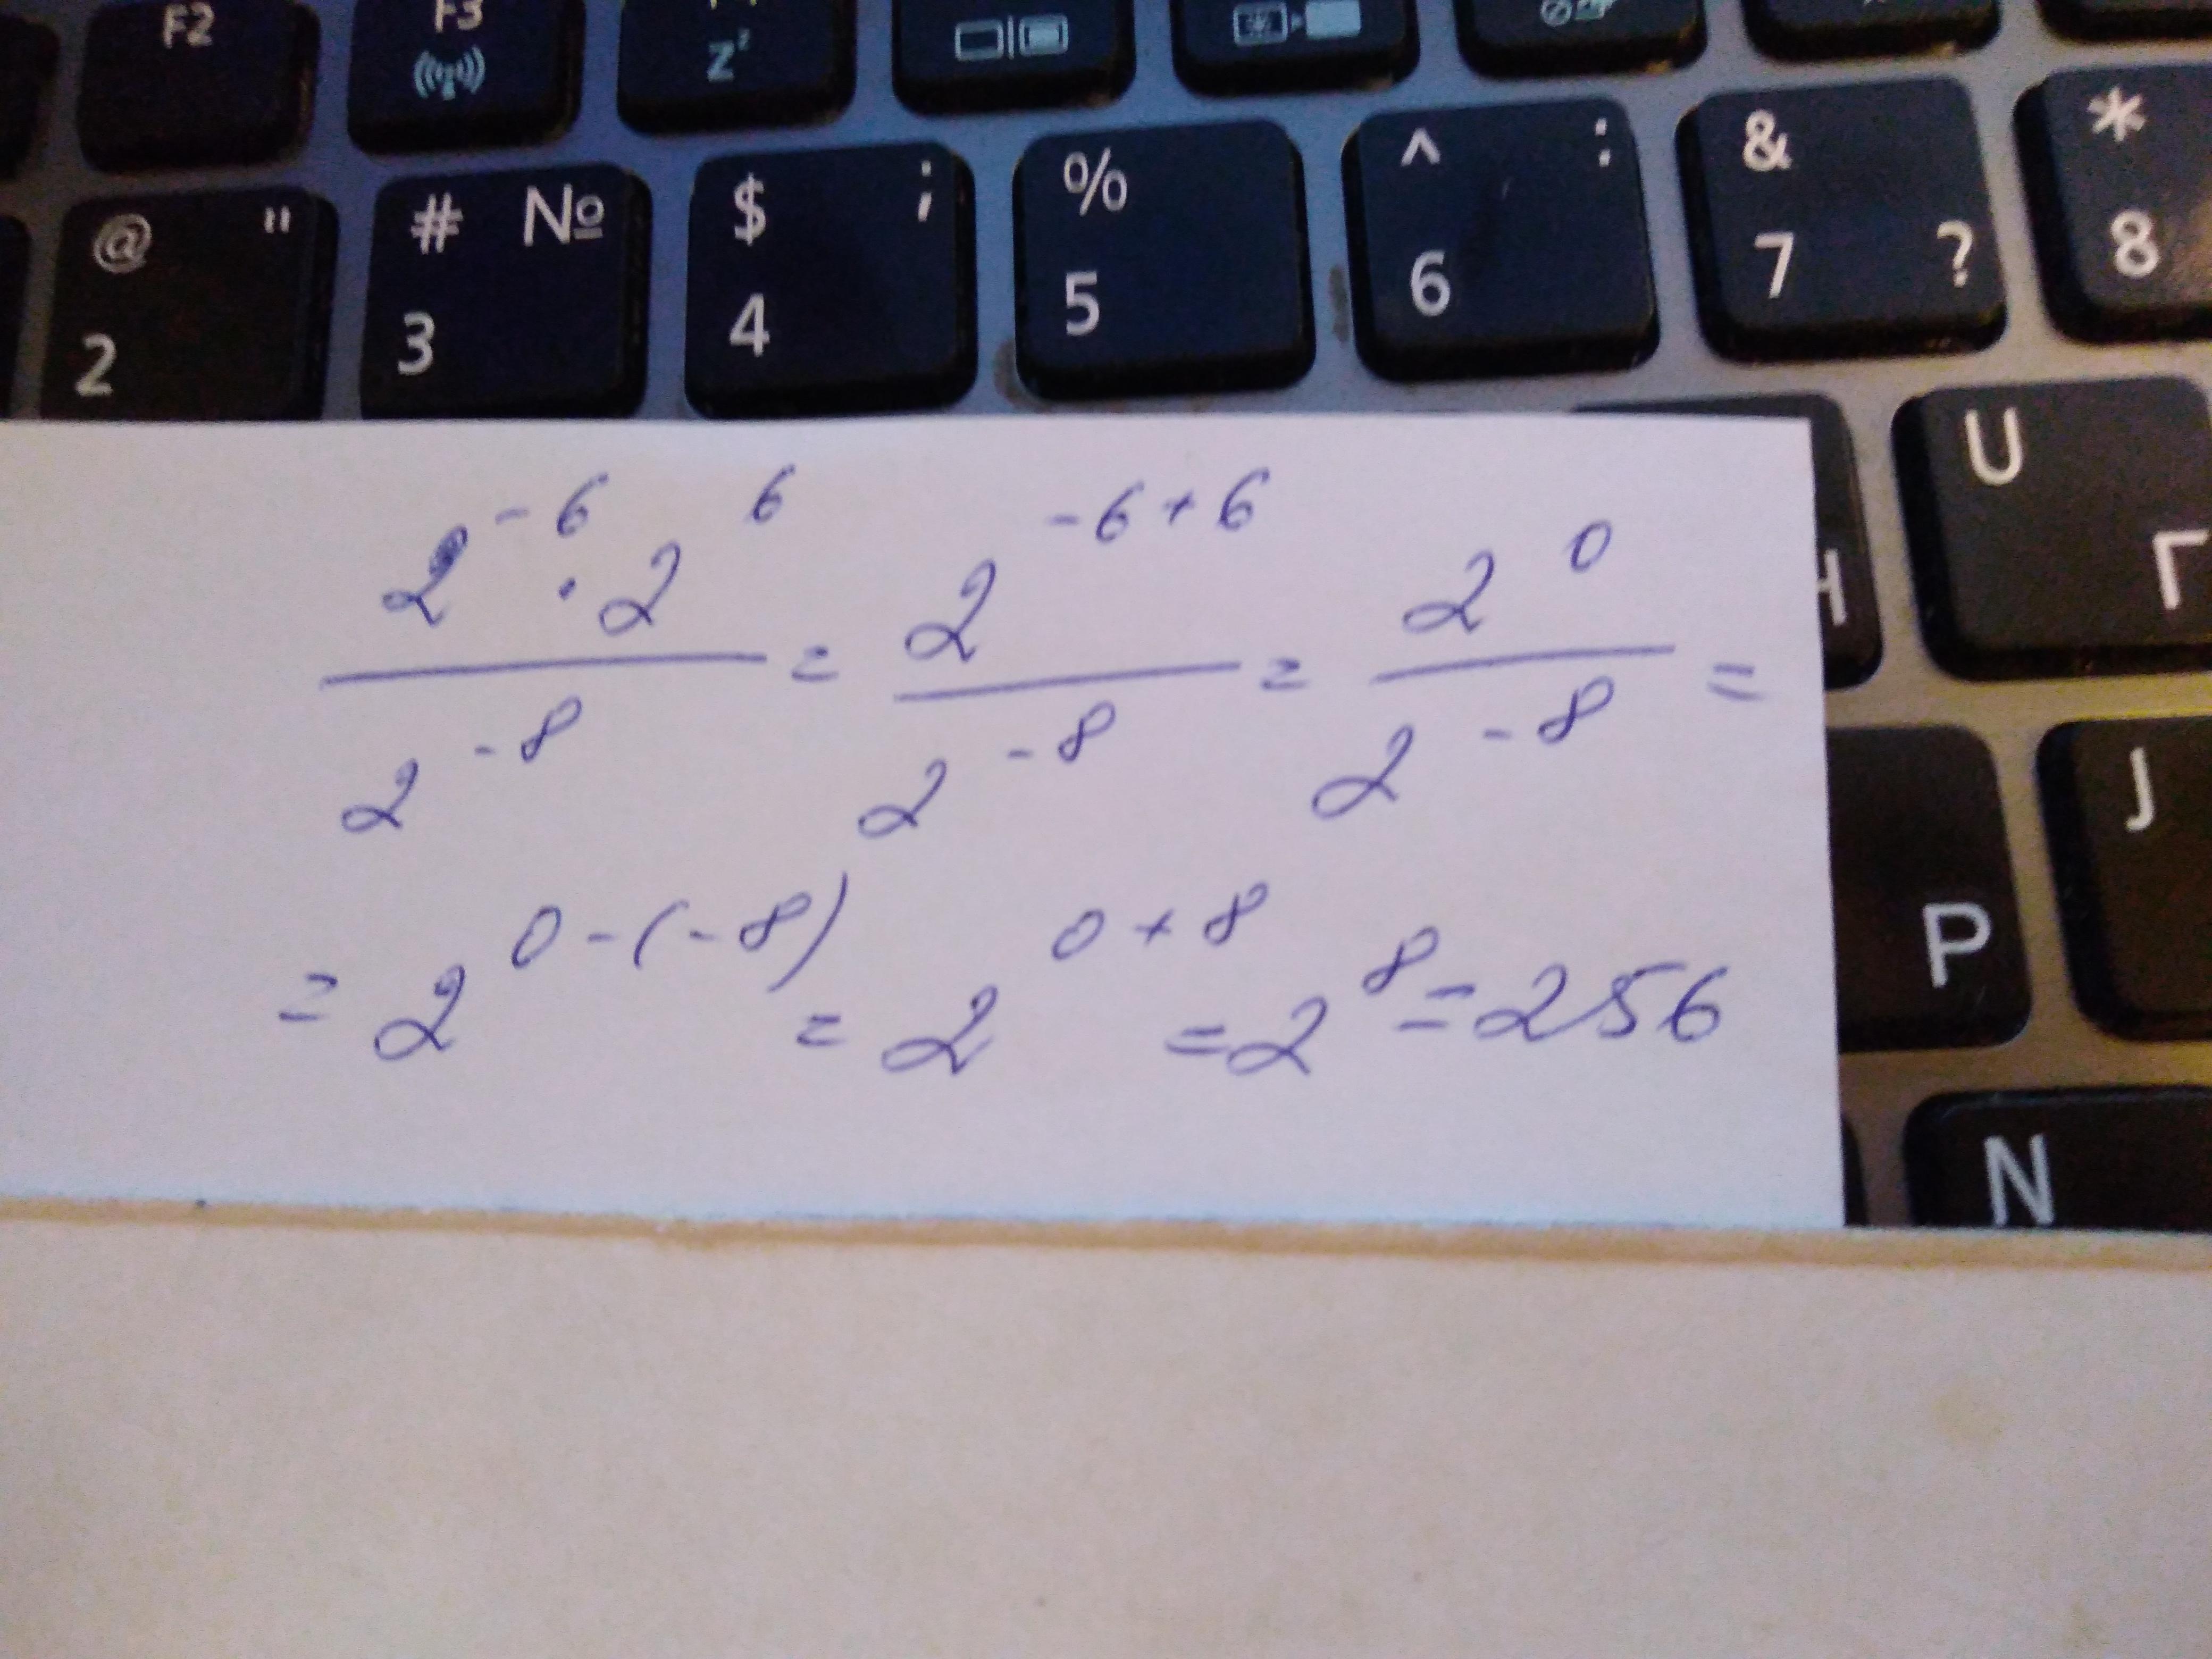 F2 F3 Z^z
@ " # № $ ; % ^ : & *
2 3 4 5 6 7 ? 8
U Г
Н
2^{-6} · 2^6 / 2^{-8} = 2^{-6+6} / 2^{-8} = 2^0 / 2^{-8} =
J
Р
= 2^{0-(-8)} = 2^{0+8} = 2^8 = 256
N